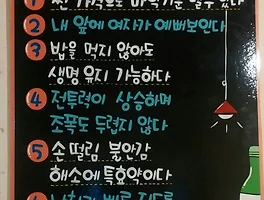 2 내 앞에 여자가 예뻐보인다
3 밥을 먹지 않아도
생명 유지 가능하다
4 전투력이 상승하며
조폭도 두렵지 않다
5 손 떨림 불안감
해소에 특효약이다